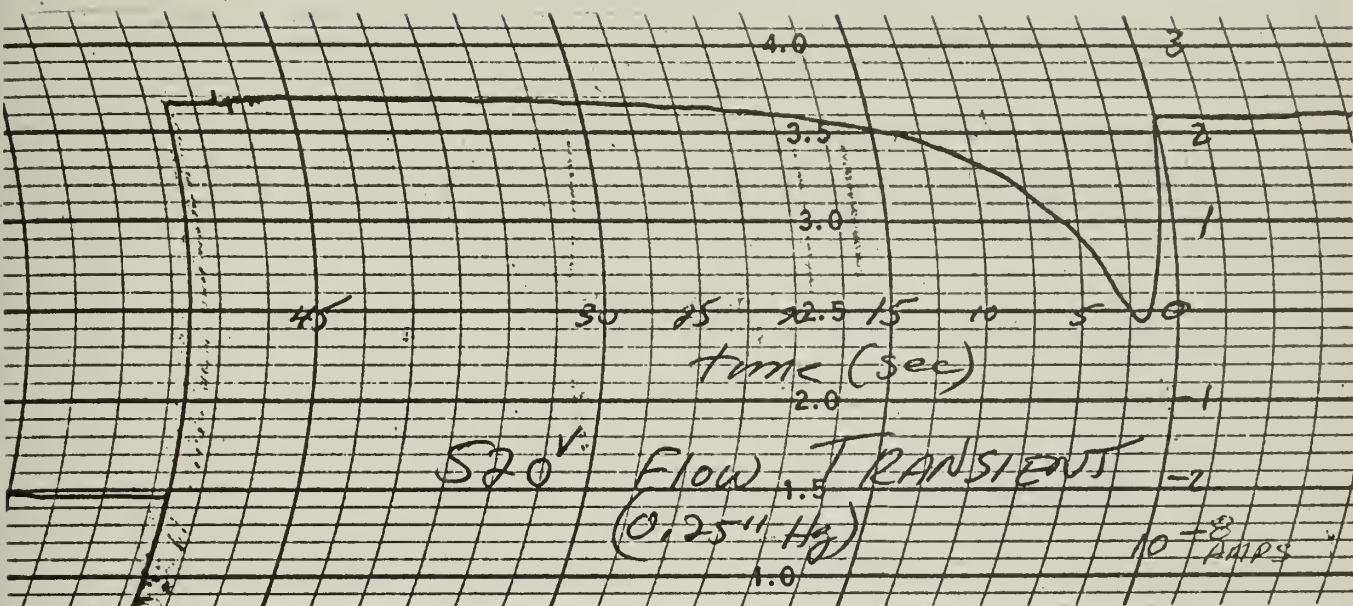 4.0 3
3.5 2
3.0 1
45 30 25 20 2.5 15 10 5 0
time (sec)
2.0 -1
520 V Flow TRANSIENT
1.5 -2
(0.25" Hg)
10 -8 AMPS
1.0